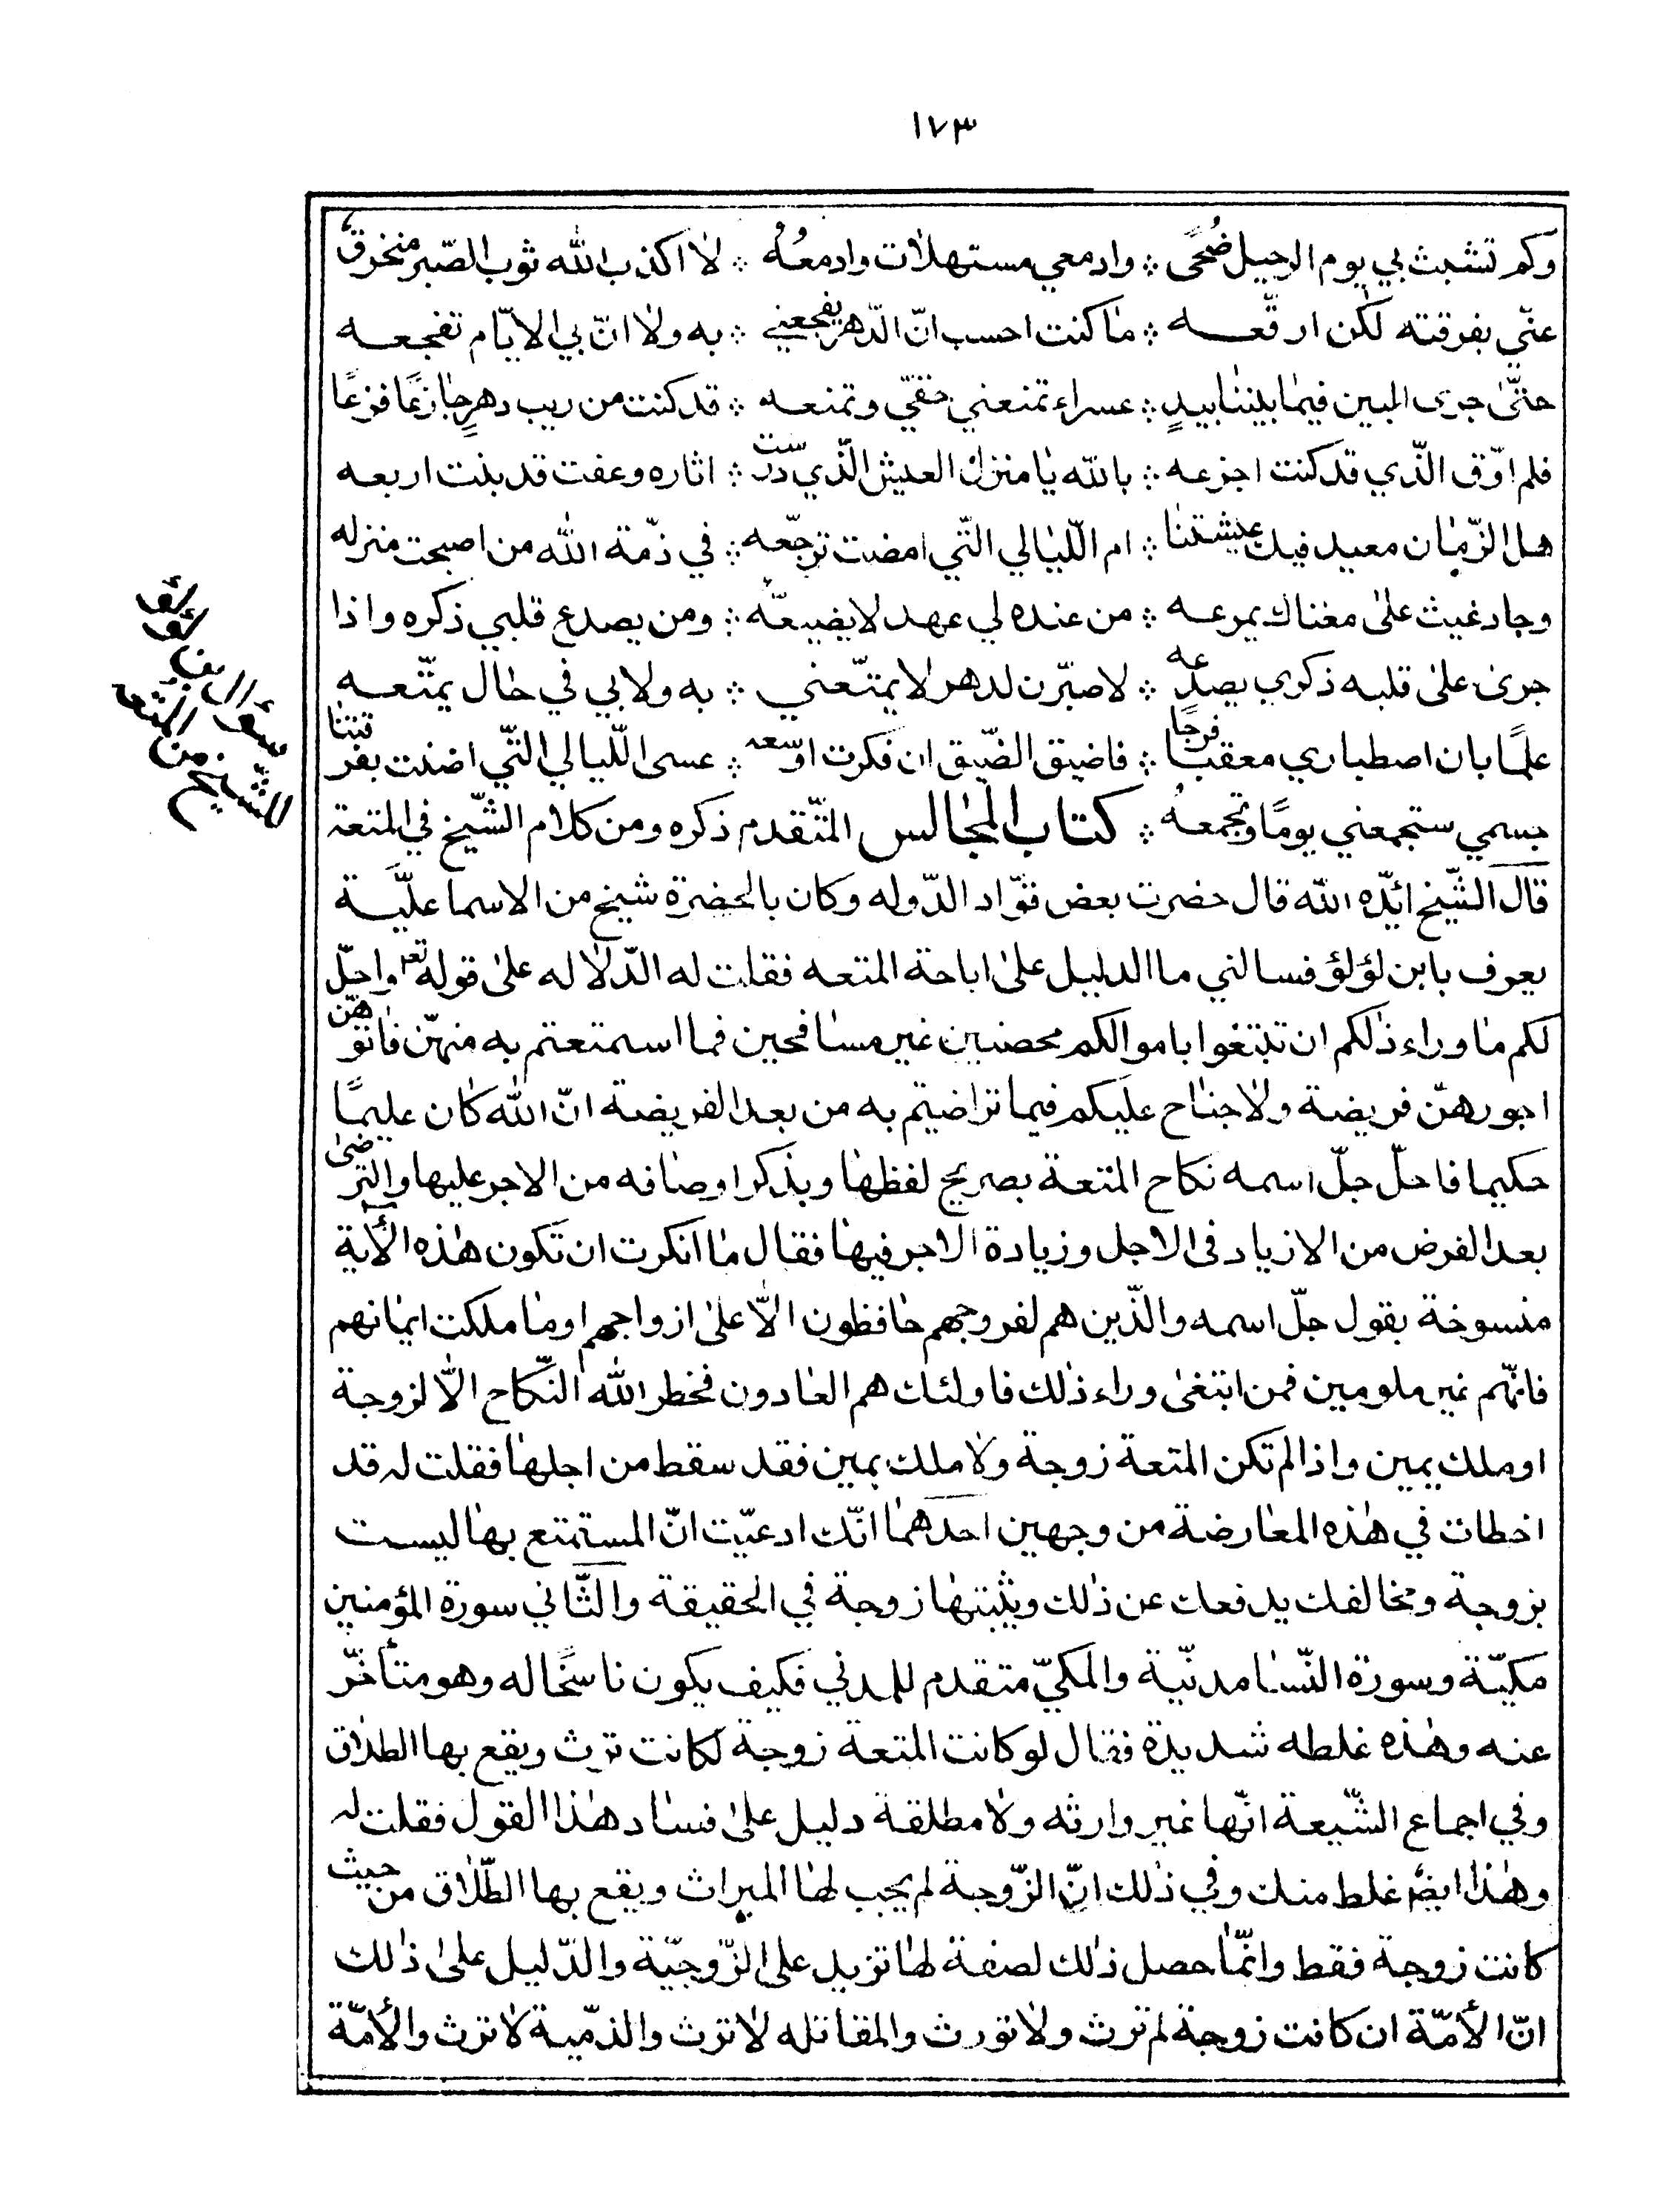 ١٧٣
وكم تشبث بي يوم الرحيل ضُحىً ⁘ وادمعي مستهلات وادمعُهُ ⁘ لا اكذب الله ثوب الصّبر منخرقٌ
عنّي بفرقته لكن ارقّعه ⁘ ما كنت احسب انّ الدّهر يفجعني ⁘ به ولا انّ بي الايّام تفجعه
حتّى جرى البين فيما بيننا بيدٍ ⁘ عسراء تمنعني حقّي وتمنعه ⁘ قد كنت من ريب دهرٍ جازعًا فزعًا
فلم اوّق الّذي قد كنت اجزعه ⁘ بالله يا منزل العيش الّذي درست ⁘ اثاره وعفت قد بنت اربعه
هل الزّمان معيد فيك عيشتنا ⁘ ام اللّيالي التّي امضت ترجّعه ⁘ في ذمّة الله من اصبحت منزله
وجاد غيث على مغناك يمرعه ⁘ من عنده لي عهد لا يضيعّه ⁘ ومن يصدع قلبي ذكره واذا
جرى على قلبه ذكري يصدّعه ⁘ لاصبّرن لدهر لا يمتّعني ⁘ به ولا بي في حال يمتّعه
علمًا بان اصطباري معقب فرجًا ⁘ فاضيق الضّيق ان فكرت اوّسعه ⁘ عسى اللّيالي التّي اضنت بفرقتنا
جسمي ستجمعني يومًا وتجمعهُ ⁘ كتاب المجالس المتّقدم ذكره ومن كلام الشّيخ في المتعة
قال الشّيخ ائيّده الله قال حضرت بعض قوّاد الدّوله وكان بالحضرة شيخ من الاسماعليّة
يعرف بابن لؤلؤ فسالني ما الدليل على اباحة المتعه فقلت له الدّلاله على قوله تعـ واحلّ
لكم ما وراء ذلكم ان تبتغوا باموالكم محصنين غير مسافحين فما استمتعتم به منهّن فاتوهّن
اجورهنّ فريضة ولا جناح عليكم فيما تراضيتم به من بعد الفريضة انّ الله كان عليمًا
حكيما فاحلّ جلّ اسمه نكاح المتعة بصريح لفظها وبذكر اوصافه من الاجر عليها والترّضى
بعد الفرض من الازياد فى الاجل وزيادة الاجر فيها فقال ما انكرت ان تكون هذه الأية
منسوخة بقول جلّ اسمه والّذين هم لفروجهم حافظون الاّ على ازواجهم او ما ملكت ايمانهم
فانهّم غير ملومين فمن ابتغى وراء ذلك فاولئك هم العادون فخطر الله النّكاح الاّ لزوجة
او ملك يمين واذا لم تكن المتعة زوجة ولا ملك يمين فقد سقط من اجلها فقلت له قد
اخطات في هذه المعارضة من وجهين احدهما انّك ادعيّت انّ المستمتع بها ليست
بزوجة ومخالفك يدفعك عن ذلك ويثبتها زوجة في الحقيقة والثّاني سورة المؤمنين
مكيّة وسورة النّسا مدنيّة والمكيّ متقدم للمدني فكيف يكون ناسخًا له وهو متأخّر
عنه وهذه غلطه شديدة فقال لو كانت المتعة زوجة لكانت ترث ويقع بها الطلاق
وفي اجماع الشّيعة انّها غير وارثه ولا مطلقة دليل على فساد هذا القول فقلت له
وهذا ايضًا غلط منك وفي ذلك انّ الزّوجة لم يجب لها الميراث ويقع بها الطّلاق من حيث
كانت زوجة فقط وانّما حصل ذلك لصفة لها تزيد على الزّوجيّة والدّليل على ذلك
انّ الأمّة ان كانت زوجة لم ترث ولا تورث والمقاتله لا ترث والذمّية لا ترث والأمّة
سؤال ابن لؤلؤ
للشّيخ من المتعه